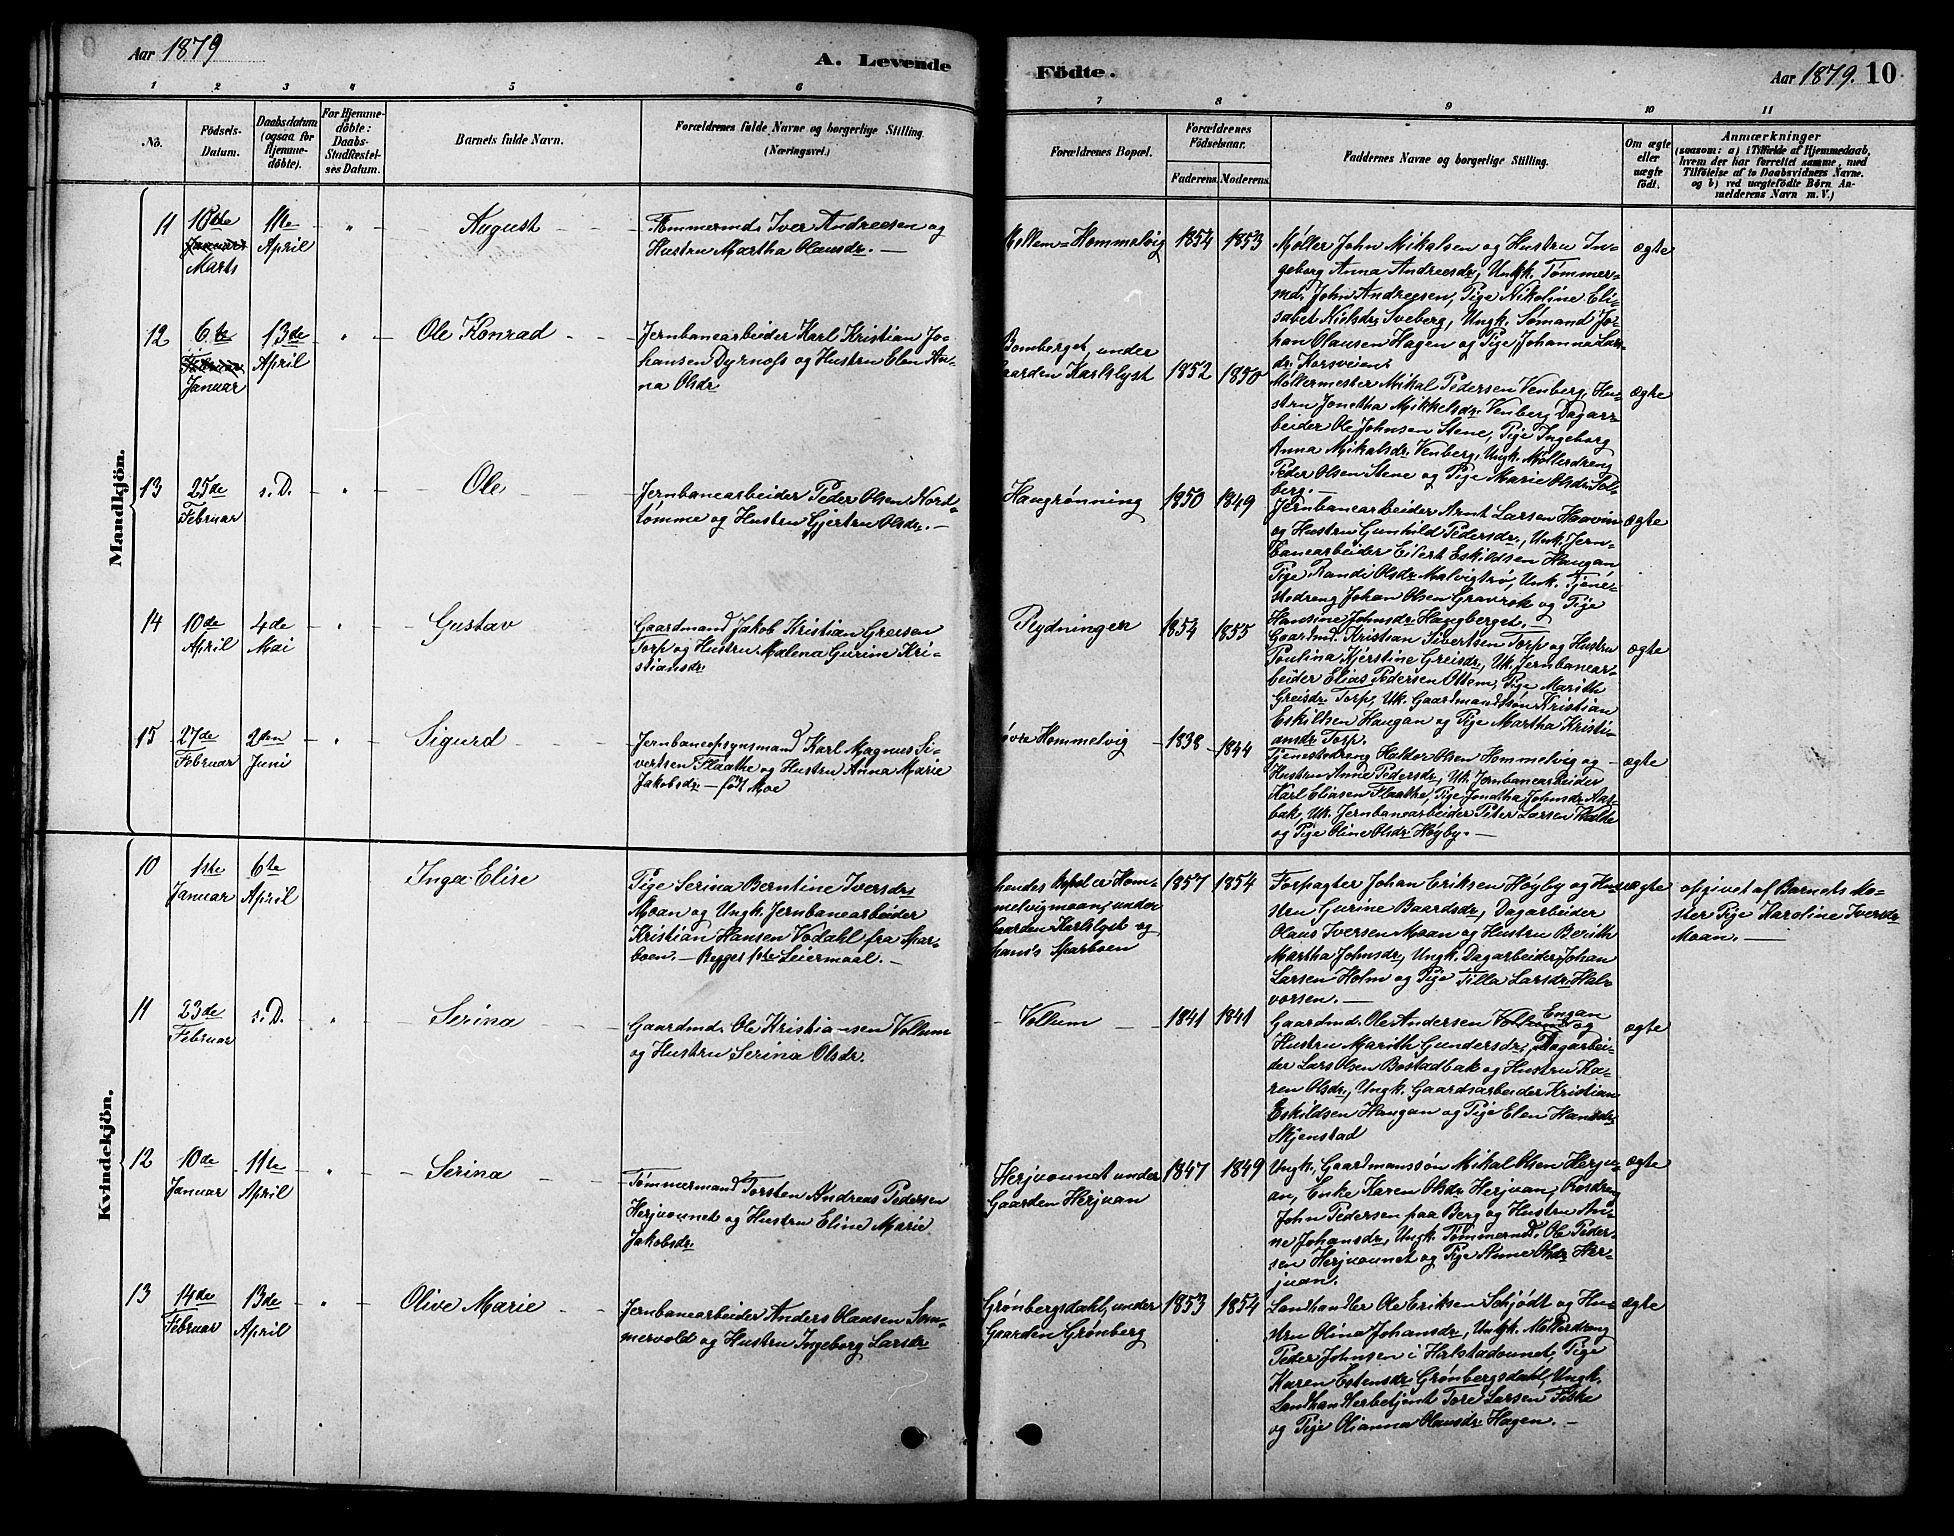 Aar 1879
A. Levende
Födte.
Aar 1879. 10
1 2 3 4 5 6 7 8 9 10 11
No.
Födsels-
Datum.
Daabsdatum
(ogsaa for
Hjemme-
döbte).
For Hjemme-
döbte:
Daabs-
Stadfæstel-
ses Datum.
Barnets fulde Navn.
Forældrenes fulde Navne og borgerlige Stilling.
(Næringsvei.)
Forældrenes Bopæl.
Forældrenes
Födselsaar.
Faderens. Moderens.
Faddernes Navne og borgerlige Stilling.
Om ægte
eller
uægte
födt.
Anmærkninger
(saasom: a) i Tilfælde af Hjemmedaab,
hvem der har forrettet samme, med
Tilföielse af to Daabsvidners Navne.
og b) ved uægtefödte Börn An-
melderens Navn m. V.)
Mandkjön.
11
10de
Januar
Marts
11te
April
August
Tømmermd. Iver Andreesen og
Hustru Martha Olausdr. —
Mellem-Hommelvig
1854 1853
Møller John Mikalsen og Hustru In-
geborg Anna Andreesdr, Ungk. Tømmer-
md. John Andreesen, Pige Nikoline Eli-
sabet Nielsdr. Sveberg, Ungk. Sømand Jo-
han Olausen Hagen og Pige Johanna Lar-
dr. Korsveien.
ægte
12
6te
Februar
Januar
13de
April
Ole Konrad
Jernbanearbeider Karl Kristian Jo-
hansen Dyrnæs og Hustru Elen An-
na Olsdr
Bomberget, under
Gaarden Karlslyst
1852 1850
Møllermester Mikal Pedersen Venberg, Hu-
stru Jonetha Mikkelsdr. Venberg, Dagar-
beider Ole Johnsen Stene, Pige Ingeborg
Anna Mikalsdr. Venberg, Ungk. Møllerdreng
Peder Olsen Stene og Pige Marie Olsdr. Sol-
berg. —
ægte
13
25de
Februar
s. D.
Ole
Jernbanearbeider Peder Olsen Nord-
tømme og Hustru Gjertru Olsdr. —
Haugrønning
1850 1849
Jernbanearbeider Arnt Larsen Haavin
og Hustru Gunhild Pedersdr., Unk. Jern-
banearbeider Eilert Eskildsen Haugan
Pige Randi Olsdr. Malvigtrø, Unk. Tjene-
stedreng Johan Olsen Gravrok og Pige
Hansine Johnsdr. Haugberget. —
ægte
14
10de
April
4de
Mai
Gustav
Gaardmand Jakob Kristian Greisen
Torp og Hustru Malena Gurine Kri-
stiansdr.
Rydningen
1854 1855
Gaardmd. Kristian Sivertsen Torp og Hustru
Paulina Kjerstine Greisdr., Uk. Jernbanear-
beider Elias Pedersen Ottem, Pige Marith
Greisdr. Torp, Uk. Gaardmandssøn Kristian
Eskilsen Haugan og Pige Martha Kristi-
ansdr. Torp.
ægte
15
27de
Februar
2den
Juni
Sigurd
Jernbaneopsynsmand Karl Magnus Si-
vertsen Flaathe og Hustru Anna Marie
Jakobsdr. — født Moe
øvre Hommelvig
1838 1844
Tjenestedreng Haldor Olsen Hommelvig og —
Hustru Anne Pedersdr., Uk. Jernbanearbeider
Karl Eliasen Flaathe, Pige Jonetha Johnsdr. Aas-
bak, Uk. Jernbanearbeider Peter Larsen Walde
og Pige Oline Olsdr. Høyby. —
ægte
Kvindekjön.
10
1ste
Januar
6te
April
Inga Elise
Pige Serina Berntine Iversdr.
Moan og Ungk. Jernbanearbeider
Kristian Hansen Vodahl fra Spar-
boen. — Begges 1ste Leiermaal. —
hendes Bopæl er Hom-
melvigmoan, under
Gaarden Karlslyst og
hans Sparboen
1857 1854
Forpagter Johan Eriksen Høyby og Hu-
stru Gurine Baardsdr., Dagarbeider
Olaus Iversen Moan og Hustru Berith
Martha Johnsdr., Ungk. Dagarbeider Johan
Larsen Holm og Pige Tilla Larsdr. Hal-
vorsen. —
uægte
opgivet af Barnets Mo-
ster Pige Karoline Iversdr
Moan. —
11
23de
Februar
s. D.
Serina
Gaardmd. Ole Kristiansen Vollum
og Hustru Serina Olsdr.
Vollum
1841 1841
Gaardmd. Ole Andersen Vollum Engan og
Hustru Marith Gundersdr., Dagarbei-
der Lars Olsen Bostadbak og Hustru Ka-
ren Olsdr., Ungk. Gaardsarbeider Kristian
Eskildsen Haugan og Pige Elen Hansdr.
Skjenstad
ægte
12
10de
Januar
11te
April
Serina
Tømmermand Torsten Andreas Pedersen
Herjuounet og Hustru Eline Marie
Jakobsdr.
Herjuounet under
Gaarden Herjuan
1847 1849
Ungk. Gaardmanssøn Mikal Olsen Herju-
an, Enke Karen Olsdr. Herjuan, Rosdreng
John Pedersen paa Berg og Hustru An-
ne Johansdr., Ungk. Tømmermd. Ole Peder-
sen Herjuounet og Pige Anne Olsdr. Her-
juan.
ægte
13
14de
Februar
13de
April
Olive Marie
Jernbanearbeider Anders Olausen Som-
mervold og Hustru Ingeborg Larsdr
Grønbergsdahl, under
Gaarden Grønberg
1853 1854
Landhandler Ole Eriksen Schjødt og Hu-
stru Olina Johansdr., Ungk. Møllerdreng
Peder Johnsen i Halstadounet, Pige
Karen Estensdr. Grønbergsdahl, Ungk.
Landhandlerbetjent Tore Larsen Fiske
og Pige Olianna Olausdr. Hagen. —
ægte